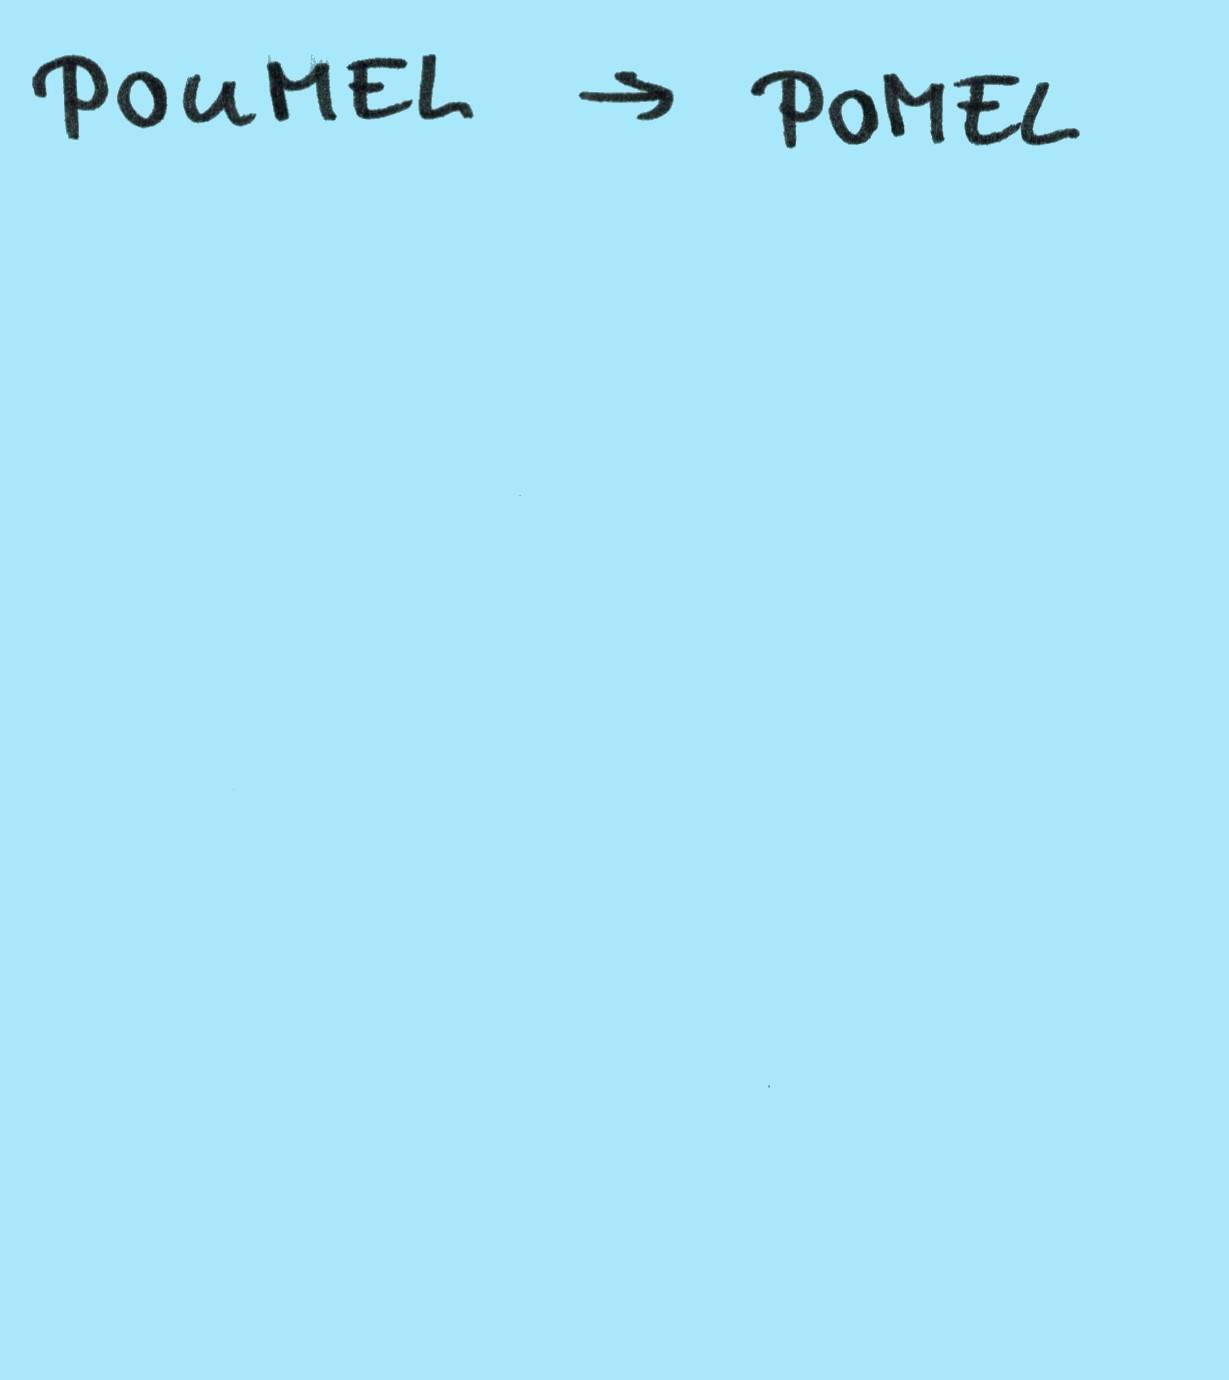 POUMEL → POMEL